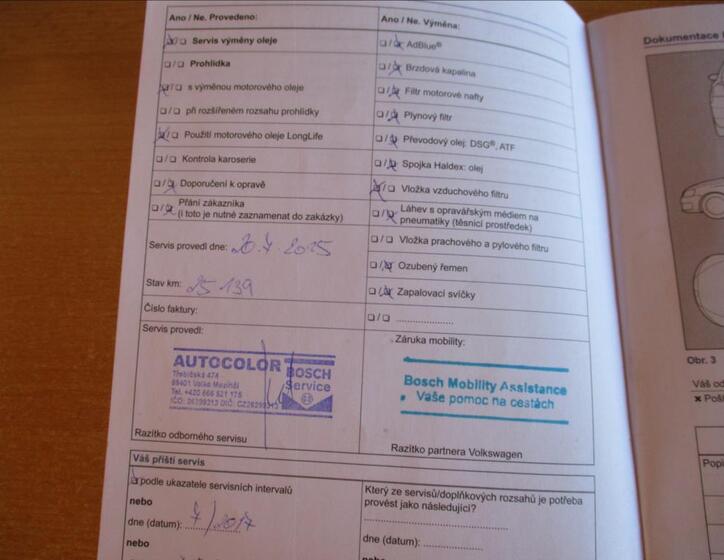 Ano / Ne. Provedeno:
❑/❑ Servis výměny oleje
❑/❑ Prohlídka
❑/❑ s výměnou motorového oleje
❑/❑ při rozšířeném rozsahu prohlídky
❑/❑ Použití motorového oleje LongLife
❑/❑ Kontrola karoserie
❑/❑ Doporučení k opravě
❑/❑ Přání zákazníka
(i toto je nutné zaznamenat do zakázky)
Servis provedl dne: 20.7.2015
Stav km: 25 139
Číslo faktury:
Servis provedl:
AUTOCOLOR
Třebíčská 474
59401 Velké Meziříčí
Tel. +420 566 521 175
BOSCH
Service
Razítko odborného servisu
Ano / Ne. Výměna:
❑/❑ AdBlue®
❑/❑ Brzdová kapalina
❑/❑ Filtr motorové nafty
❑/❑ Plynový filtr
❑/❑ Převodový olej: DSG®, ATF
❑/❑ Spojka Haldex: olej
❑/❑ Vložka vzduchového filtru
❑/❑ Láhev s opravářským médiem na
pneumatiky (těsnicí prostředek)
❑/❑ Vložka prachového a pylového filtru
❑/❑ Ozubený řemen
❑/❑ Zapalovací svíčky
❑/❑ .....................
Záruka mobility:
Bosch Mobility Assistance
Vaše pomoc na cestách
Razítko partnera Volkswagen
Váš příští servis
❑ podle ukazatele servisních intervalů
nebo
dne (datum): 7/2017
nebo
Který ze servisů/doplňkových rozsahů je potřeba
provést jako následující?
dne (datum):
nebo
Dokumentace
Obr. 3
Váš od
✖ Poš
Popi